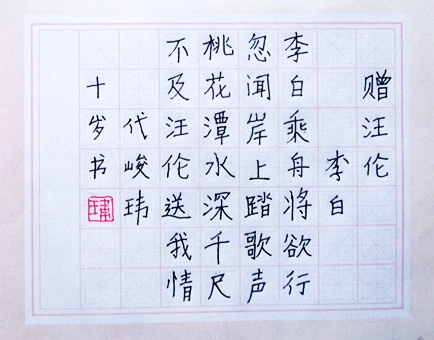 赠汪伦
李白
李白乘舟将欲行
忽闻岸上踏歌声
桃花潭水深千尺
不及汪伦送我情
代峻玮
十岁书